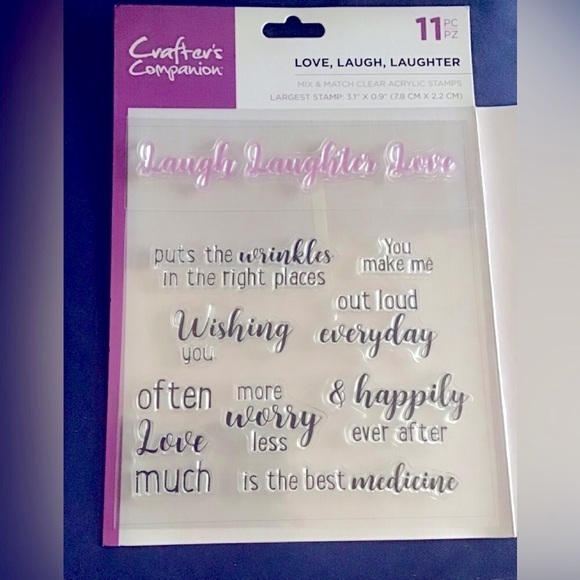 Crafter's
Companion
11 PC
PZ
LOVE, LAUGH, LAUGHTER
MIX & MATCH CLEAR ACRYLIC STAMPS
LARGEST STAMP: 3.1" X 0.9" (7.8 CM X 2.2 CM)
Laugh Laughter Love
puts the wrinkles
in the right places
You
make me
out loud
Wishing
you
everyday
often
Love
much
more
worry
less
& happily
ever after
is the best medicine